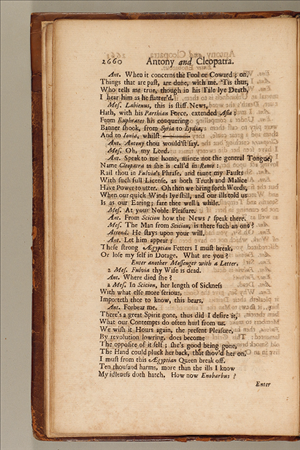 2660 Antony and Cleopatra.
Ant. When it concerns the Fool or Coward; on,
Things that are past, are done, with me. 'Tis thus,
Who tells me true, though in his Tale lye Death,
I hear him as he flatter'd.
Mes. Labienus, this is stiff News,
Hath, with his Parthian Force, extended Asia;
From Euphrates his conquering
Banner shook, from Syria to Lydia,
And to Ionia, whilst
Ant. Antony thou would'st say.
Mes. Oh, my Lord.
Ant. Speak to me home, mince not the general Tongue,
Name Cleopatra as she is call'd in Rome:
Rail thou in Fulvia's Phrase, and taunt my Faults
With such full License, as both Truth and Malice
Have Power to utter. Oh then we bring forth Weeds,
When our quick Winds lye still, and our ills told us
Is as our Earing; fare thee well a while.
Mes. At your Noble Pleasure.
Ant. From Scicion how the News? speak there.
Mes. The Man from Scicion, is there such an one?
Attend. He stays upon your will.
Ant. Let him appear;
These strong Ægyptian Fetters I must break,
Or lose my self in Dotage. What are you?
Enter another Messenger with a Letter.
2 Mes. Fulvia thy Wife is dead.
Ant. Where died she?
2 Mes. In Scicion, her length of Sickness
With what else more serious,
Importeth thee to know, this bears.
Ant. Forbear me.
There's a great Spirit gone, thus did I desire it,
What our Contempts do often hurl from us,
We wish it Hours again, the present Pleasure,
By revolution lowring, does become
The opposite of it self; she's good being gone,
The Hand could pluck her back, that shov'd her on.
I must from this Ægyptian Queen break off.
Ten thousand harms, more than the ills I know
My idleness doth hatch. How now Enobarbus?
Enter